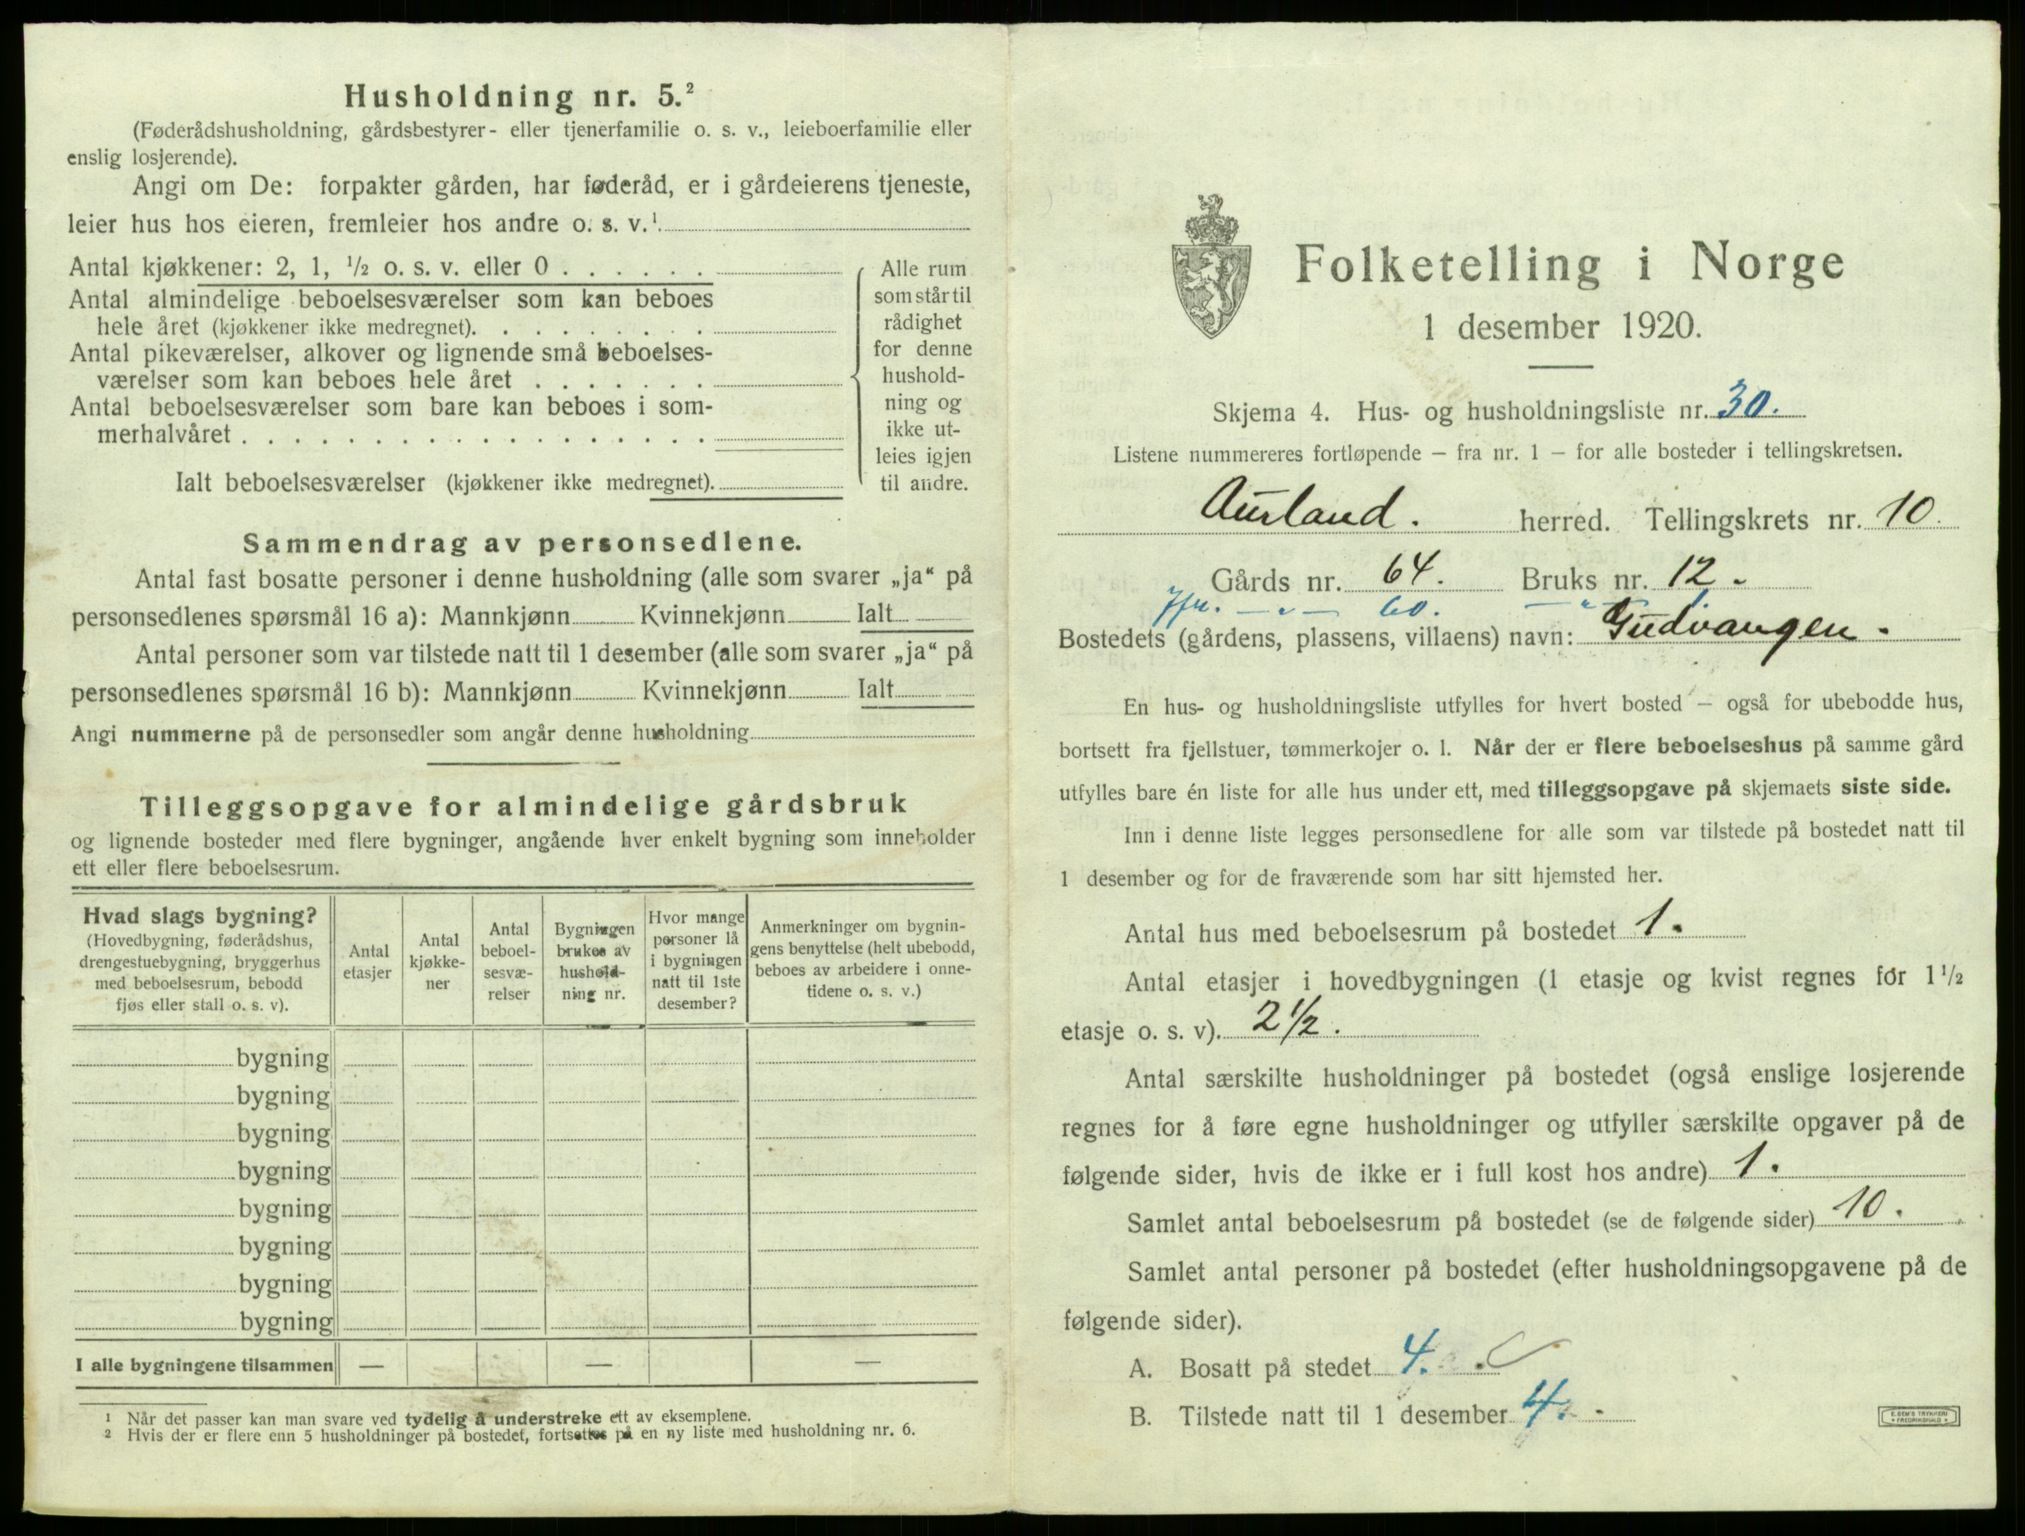 Husholdning nr. 5.²
(Føderådshusholdning, gårdsbestyrer- eller tjenerfamilie o. s. v., leieboerfamilie eller
enslig losjerende).
Angi om De: forpakter gården, har føderåd, er i gårdeierens tjeneste,
leier hus hos eieren, fremleier hos andre o. s. v.¹
Antal kjøkkener: 2, 1, ½ o. s. v. eller 0 . . . . . .
Antal almindelige beboelsesværelser som kan beboes
hele året (kjøkkener ikke medregnet). . . . . . . . .
Antal pikeværelser, alkover og lignende små beboelses-
værelser som kan beboes hele året . . . . . . .
Antal beboelsesværelser som bare kan beboes i som-
merhalvåret . . . . . . . . . . . . . . . . . .
Ialt beboelsesværelser (kjøkkener ikke medregnet).
Alle rum
som står til
rådighet
for denne
hushold-
ning og
ikke ut-
leies igjen
til andre.
Sammendrag av personsedlene.
Antal fast bosatte personer i denne husholdning (alle som svarer „ja“ på
personsedlenes spørsmål 16 a): Mannkjønn Kvinnekjønn Ialt
Antal personer som var tilstede natt til 1 desember (alle som svarer „ja“ på
personsedlenes spørsmål 16 b): Mannkjønn Kvinnekjønn Ialt
Angi nummerne på de personsedler som angår denne husholdning
Tilleggsopgave for almindelige gårdsbruk
og lignende bosteder med flere bygninger, angående hver enkelt bygning som inneholder
ett eller flere beboelsesrum.
Hvad slags bygning?
(Hovedbygning, føderådshus,
drengestuebygning, bryggerhus
med beboelsesrum, bebodd
fjøs eller stall o. s. v).
Antal
etasjer
Antal
kjøkke-
ner
Antal
beboel-
sesvæ-
relser
Bygningen
brukes av
hushold-
ning nr.
Hvor mange
personer lå
i bygningen
natt til 1ste
desember?
Anmerkninger om bygnin-
gens benyttelse (helt ubebodd,
beboes av arbeidere i onne-
tidene o. s. v.)
bygning
bygning
bygning
bygning
bygning
bygning
bygning
bygning
I alle bygningene tilsammen — — —
¹ Når det passer kan man svare ved tydelig å understreke ett av eksemplene.
² Hvis der er flere enn 5 husholdninger på bostedet, fortsettes på en ny liste med husholdning nr. 6.
Folketelling i Norge
1 desember 1920.
Skjema 4. Hus- og husholdningsliste nr. 30.
Listene nummereres fortløpende – fra nr. 1 – for alle bosteder i tellingskretsen.
Aurland. herred. Tellingskrets nr. 10.
Gårds nr. 64. Bruks nr. 12.
Jfr. — „ — 60. — „ — 1
Bostedets (gårdens, plassens, villaens) navn: Gudvangen.
En hus- og husholdningsliste utfylles for hvert bosted – også for ubebodde hus,
bortsett fra fjellstuer, tømmerkojer o. l. Når der er flere beboelseshus på samme gård
utfylles bare én liste for alle hus under ett, med tilleggsopgave på skjemaets siste side.
Inn i denne liste legges personsedlene for alle som var tilstede på bostedet natt til
1 desember og for de fraværende som har sitt hjemsted her.
Antal hus med beboelsesrum på bostedet 1.
Antal etasjer i hovedbygningen (1 etasje og kvist regnes for 1½
etasje o. s. v). 2½.
Antal særskilte husholdninger på bostedet (også enslige losjerende
regnes for å føre egne husholdninger og utfyller særskilte opgaver på de
følgende sider, hvis de ikke er i full kost hos andre) 1.
Samlet antal beboelsesrum på bostedet (se de følgende sider) 10.
Samlet antal personer på bostedet (efter husholdningsopgavene på de
følgende sider).
A. Bosatt på stedet 4.
B. Tilstede natt til 1 desember 4.
E. SEM'S TRYKKERI
FREDRIKSHALD